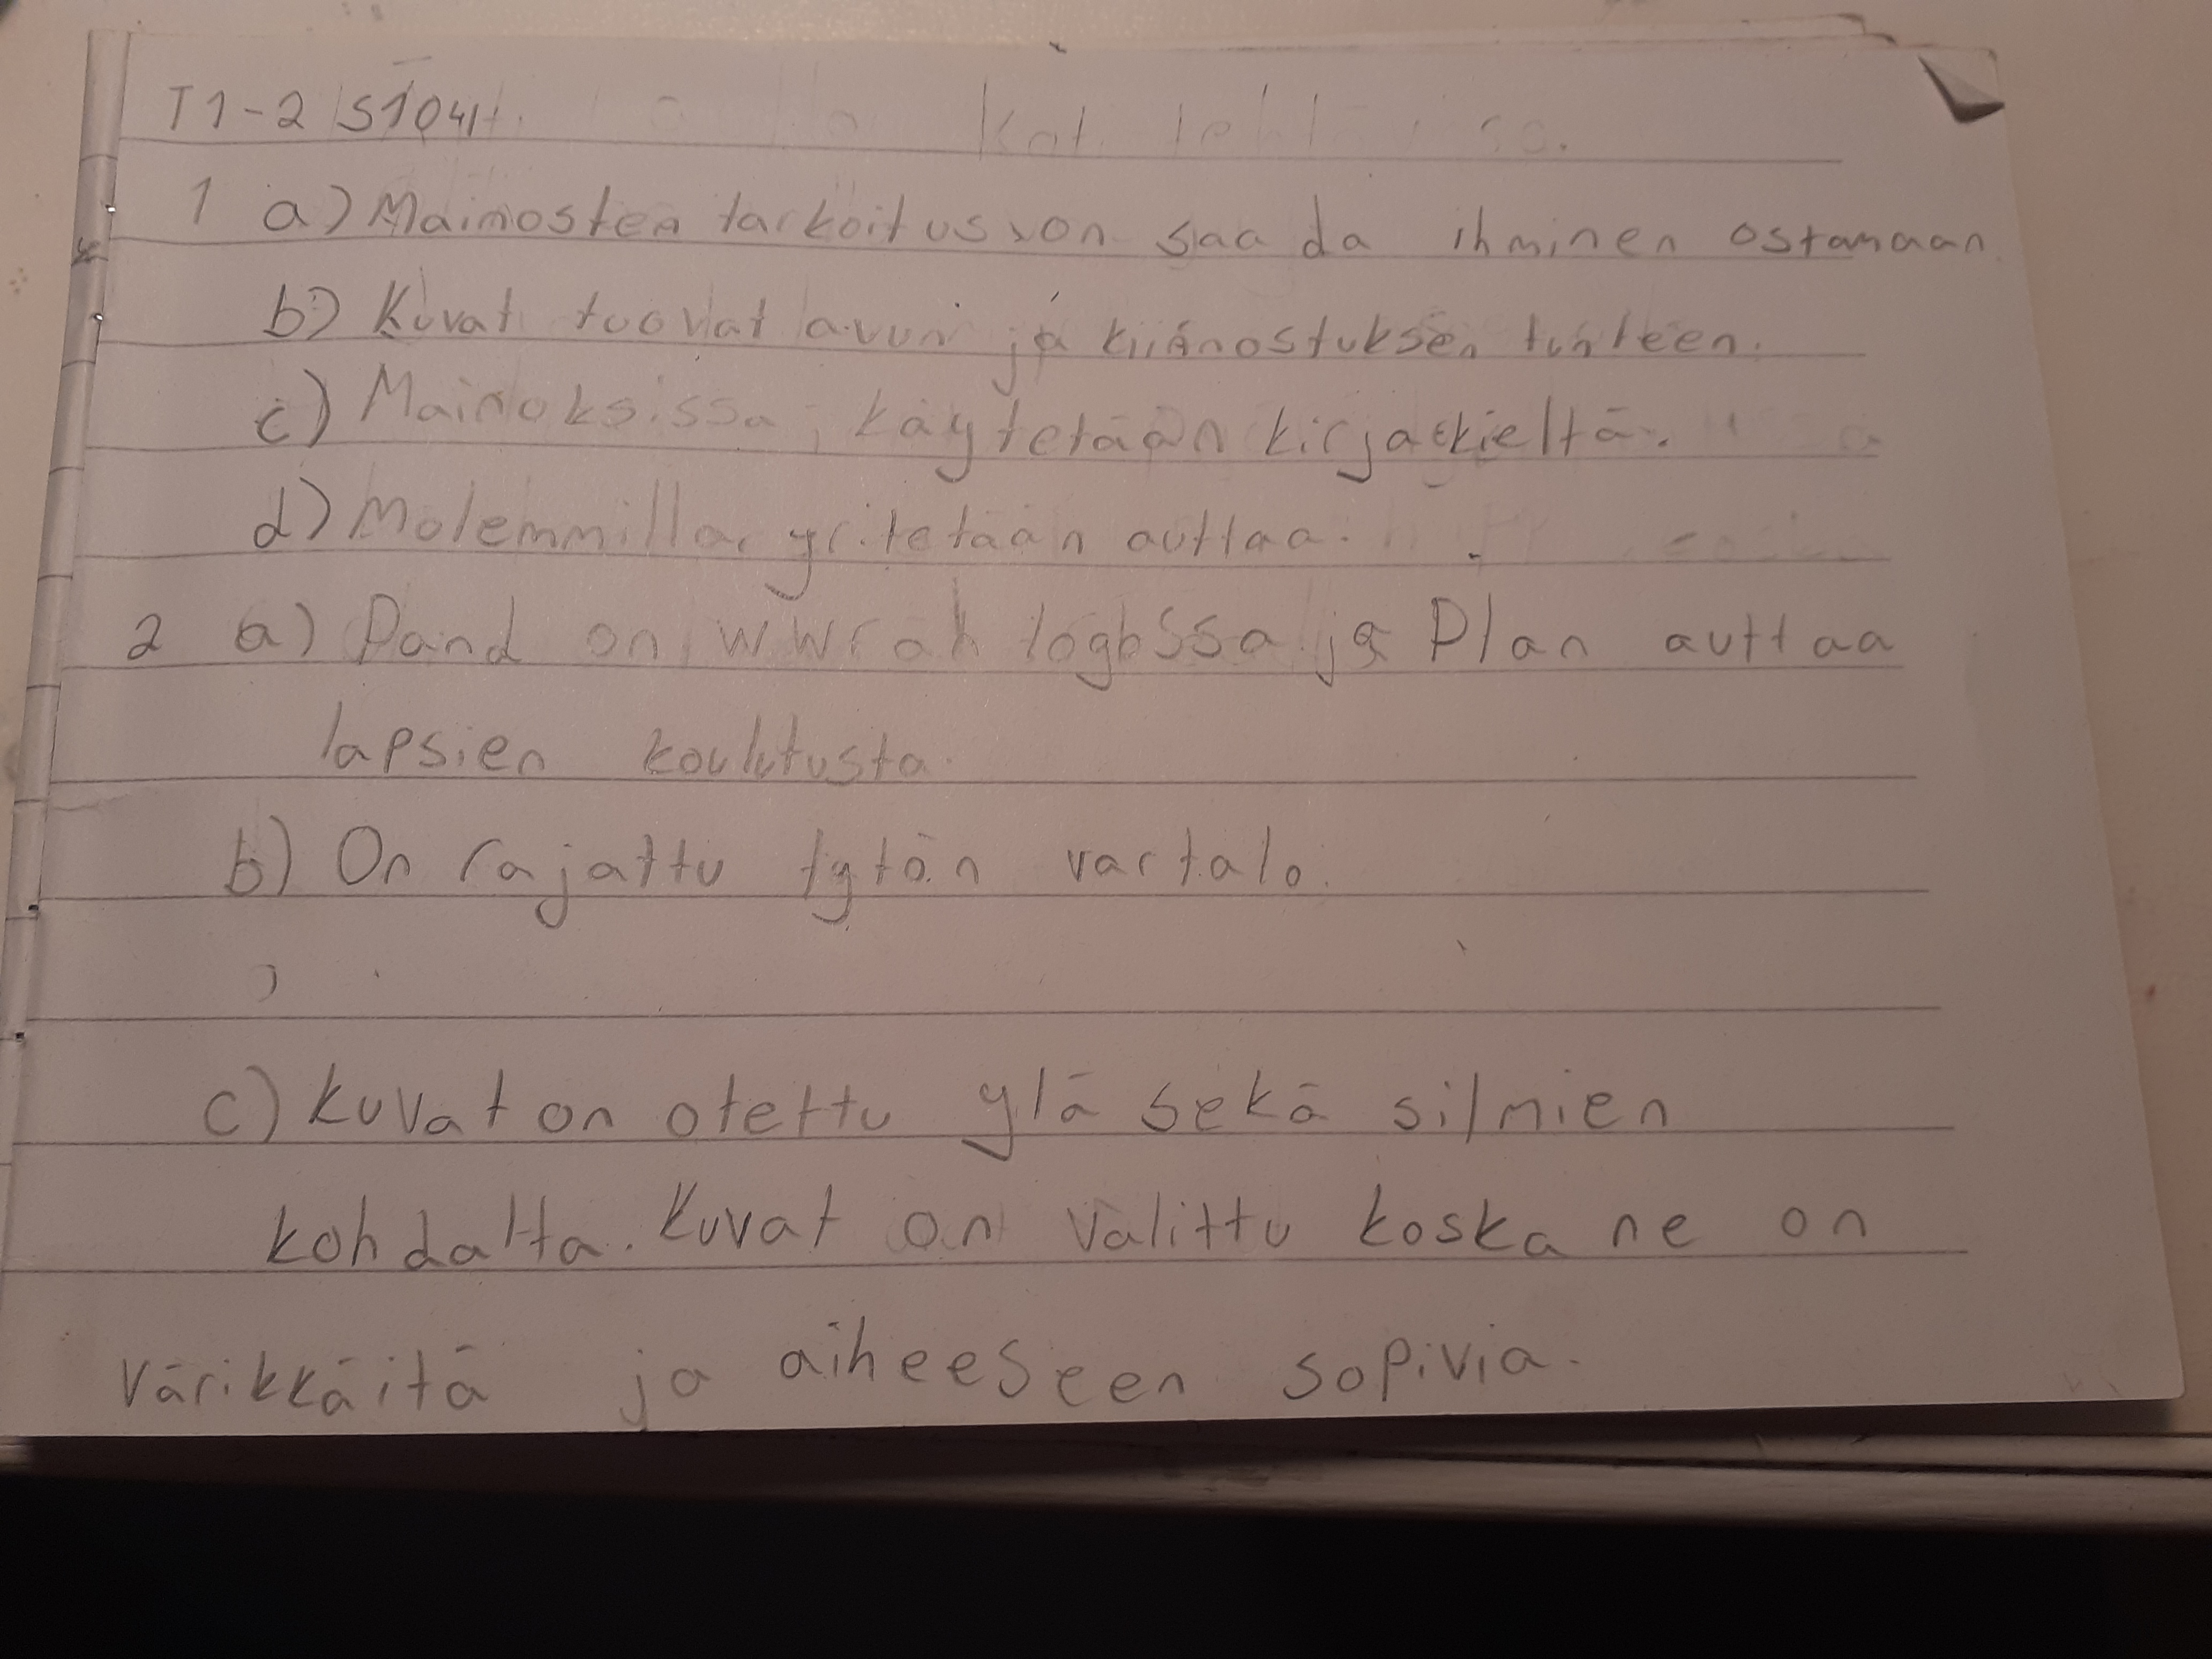 T1-2 S104
1 a) Mainosten tarkoitus on saada ihminen ostamaan
b) Kuvat tuovat avun ja kiinnostuksen tunteen.
c) Mainoksissa käytetään kirjakieltä.
d) Molemmilla yritetään auttaa.
2 a) Pand on logossa ja Plan auttaa
lapsien koulutusta
b) On rajattu tytön vartalo.
c) kuvat on otettu ylä sekä silmien
kohdalta. Kuvat on valittu koska ne on
värikkäitä ja aiheeseen sopivia.